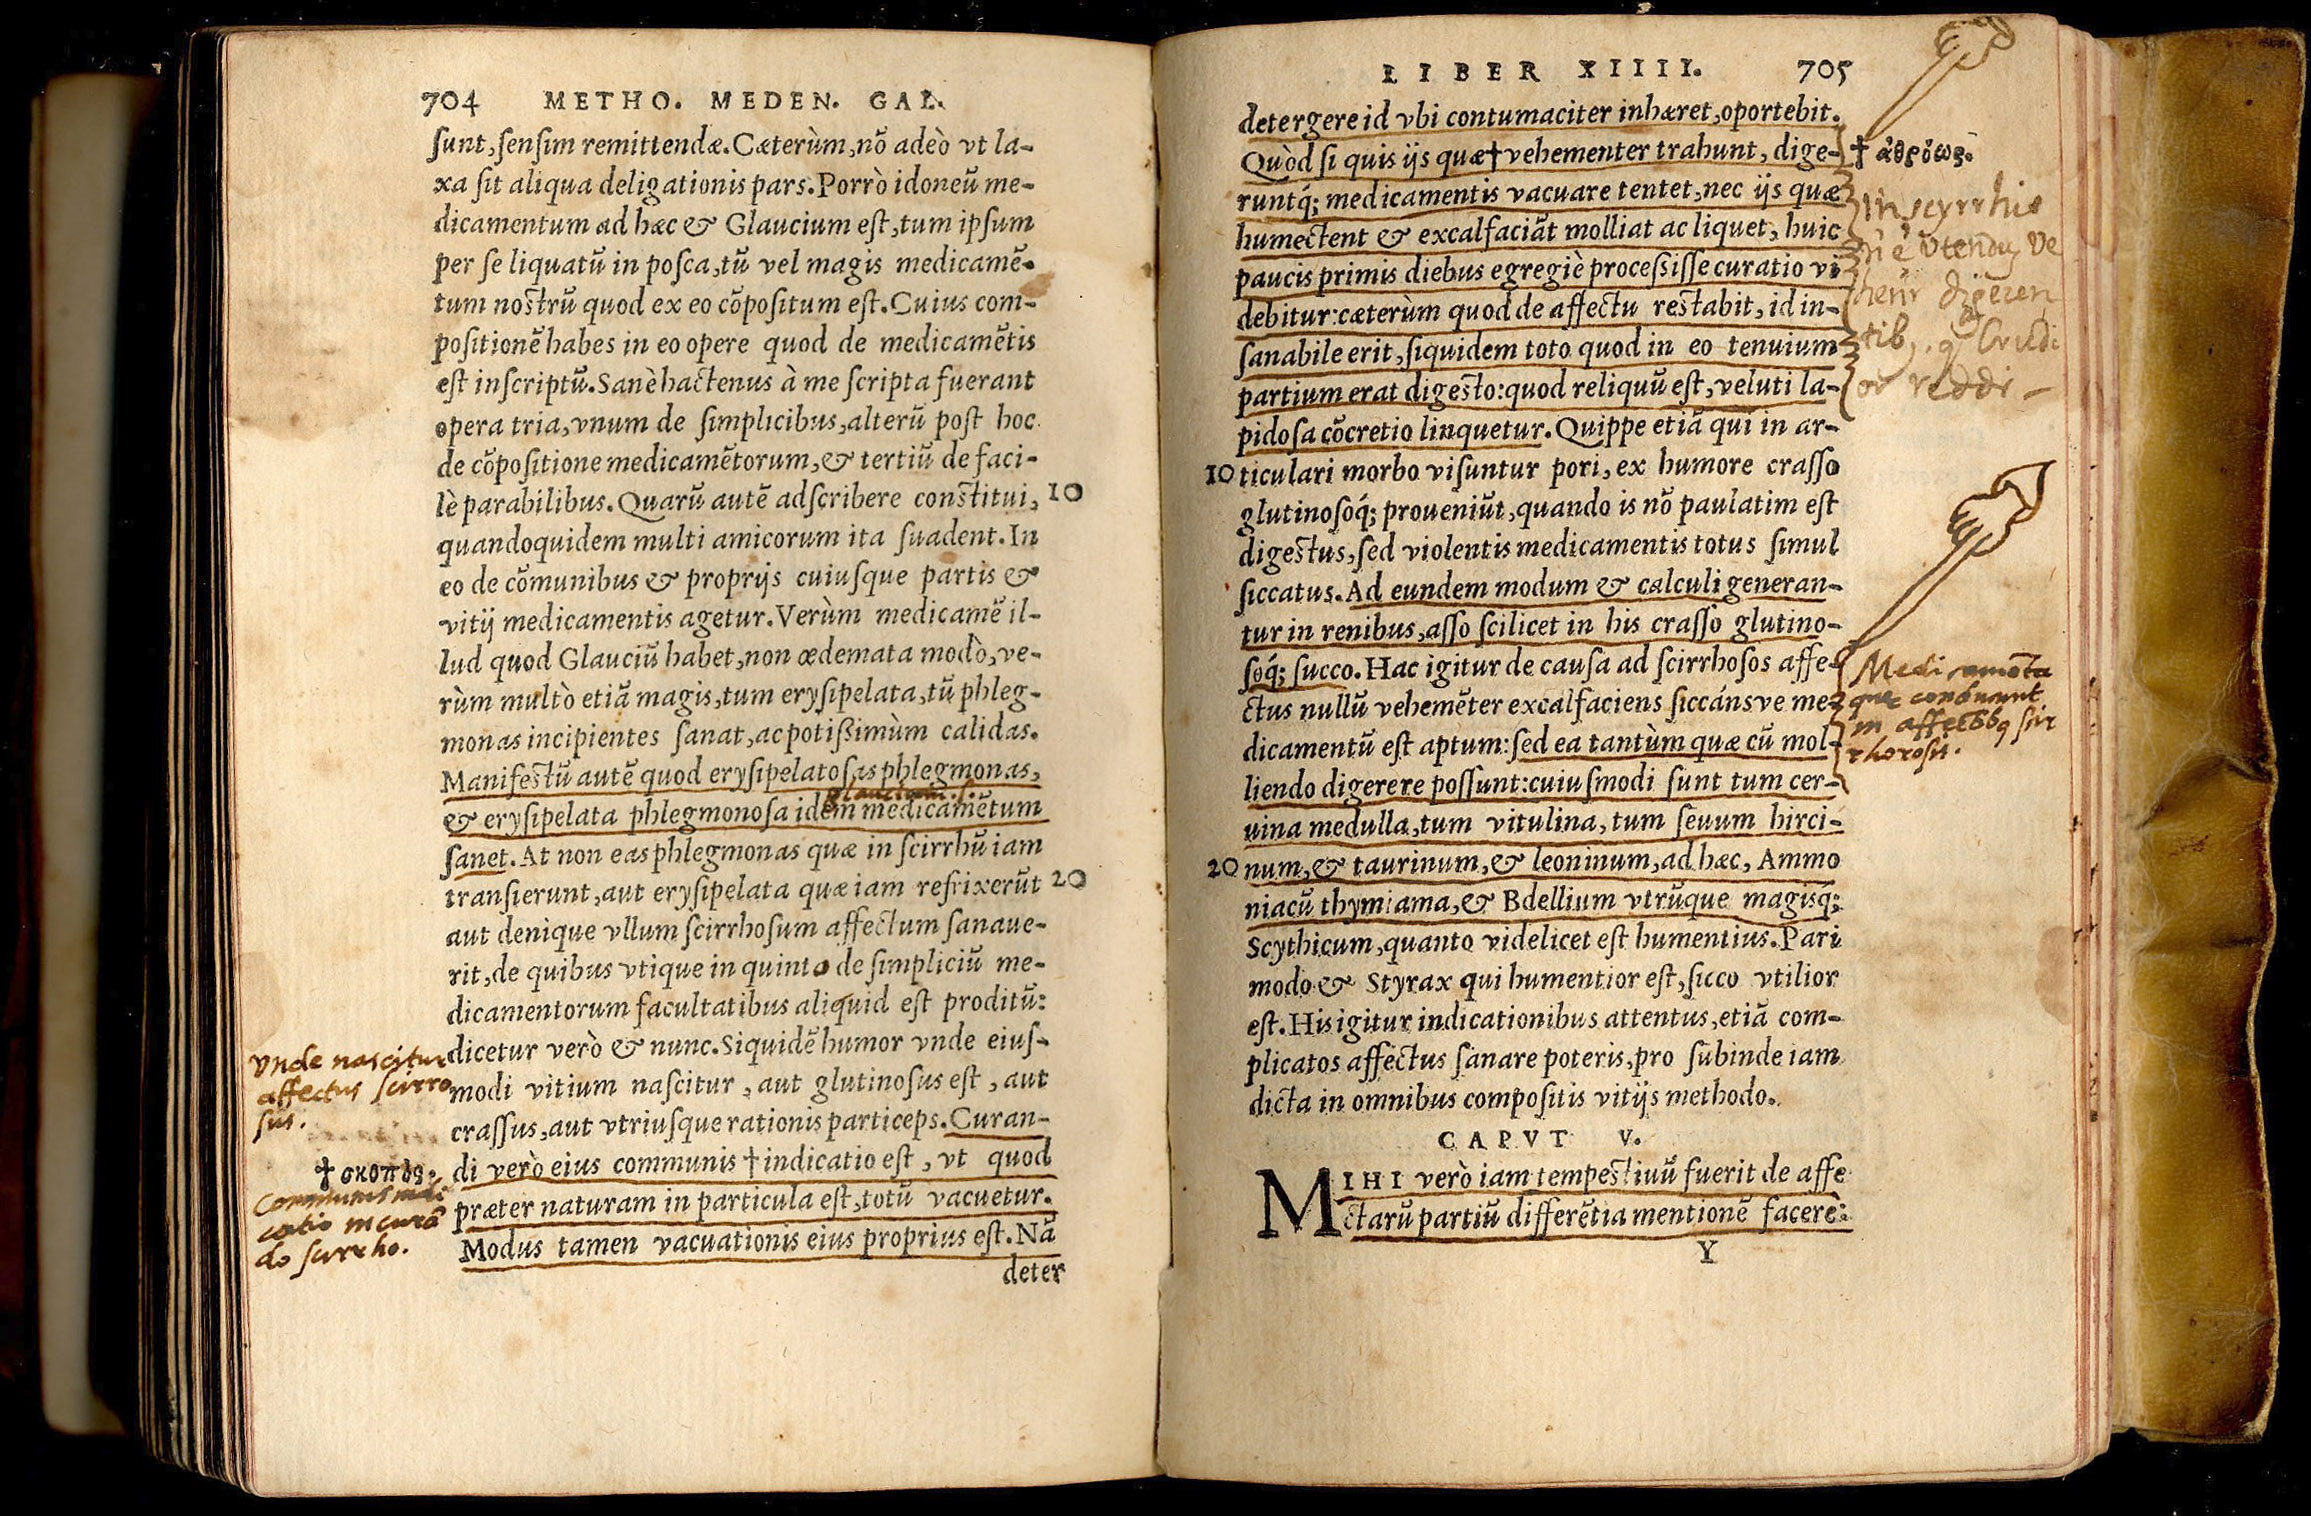 704 METHO. MEDEN. GAL.
sunt, sensim remittendæ. Cæterùm, nõ adeò vt la-
xa sit aliqua deligationis pars. Porrò idoneũ me-
dicamentum ad hæc & Glaucium est, tum ipsum
per se liquatũ in posca, tũ vel magis medicamẽ-
tum nostrũ quod ex eo cõpositum est. Cuius com-
positionẽ habes in eo opere quod de medicamẽtis
est inscriptũ. Sanè hactenus à me scripta fuerant
opera tria, vnum de simplicibus, alterũ post hoc
de cõpositione medicamẽtorum, & tertiũ de faci-
lè parabilibus. Quarũ autẽ adscribere constitui, 10
quandoquidem multi amicorum ita suadent. In
eo de cõmunibus & proprijs cuiusque partis &
vitij medicamentis agetur. Verùm medicamẽ il-
lud quod Glauciũ habet, non œdemata modò, ve-
rùm multò etiã magis, tum erysipelata, tũ phleg-
monas incipientes sanat, ac potißimùm calidas.
Manifestũ autẽ quod erysipelatosas phlegmonas,
glaucium .s.
& erysipelata phlegmonosa idem medicamẽtum
sanet. At non eas phlegmonas quæ in scirrhũ iam
transierunt, aut erysipelata quæ iam refrixerũt 20
aut denique vllum scirrhosum affectum sanaue-
rit, de quibus vtique in quinto de simpliciũ me-
dicamentorum facultatibus aliquid est proditũ:
dicetur verò & nunc. Siquidẽ humor vnde eius-
modi vitium nascitur, aut glutinosus est, aut
crassus, aut vtriusque rationis particeps. Curan-
di verò eius communis † indicatio est, vt quod
præter naturam in particula est, totũ vacuetur.
Modus tamen vacuationis eius proprius est. Nã
deter
vnde nascitur
affectus scirro
sus.
† σκοπὸς.
Communis indi
catio in curã
do scirrho.
LIBER XIIII. 705
detergere id vbi contumaciter inhæret, oportebit.
Quòd si quis ijs quæ † vehementer trahunt, dige-
runtq́; medicamentis vacuare tentet, nec ijs quæ
humectent & excalfaciãt molliat ac liquet, huic
paucis primis diebus egregiè processisse curatio vi
debitur: cæterùm quod de affectu restabit, id in-
sanabile erit, siquidem toto quod in eo tenuium
partium erat digesto: quod reliquũ est, veluti la-
pidosa cõcretio linquetur. Quippe etiã qui in ar-
10 ticulari morbo visuntur pori, ex humore crasso
glutinosóq́; proueniũt, quando is nõ paulatim est
digestus, sed violentis medicamentis totus simul
siccatus. Ad eundem modum & calculi generan-
tur in renibus, asso scilicet in his crasso glutino-
sóq́; succo. Hac igitur de causa ad scirrhosos affe-
ctus nullũ vehemẽter excalfaciens siccánsve me-
dicamentũ est aptum: sed ea tantùm quæ cũ mol-
liendo digerere possunt: cuiusmodi sunt tum cer-
uina medulla, tum vitulina, tum seuum hirci-
20 num, & taurinum, & leoninum, ad hæc, Ammo
niacũ thymiama, & Bdellium vtrũque magisq́;
Scythicum, quanto videlicet est humentius. Pari
modo & Styrax qui humentior est, sicco vtilior
est. His igitur indicationibus attentus, etiã com-
plicatos affectus sanare poteris, pro subinde iam
dicta in omnibus compositis vitijs methodo.
CAPVT V.
MIHI verò iam tempestiuũ fuerit de affe
ctarũ partiũ differẽtia mentionẽ facere:
Y
† ἀθρόως.
In scyrrhis
utendũ ve
digeren
tib
reddi-
Medicamẽta
que conveniunt
in affectibꝫ scir
rhorosis.